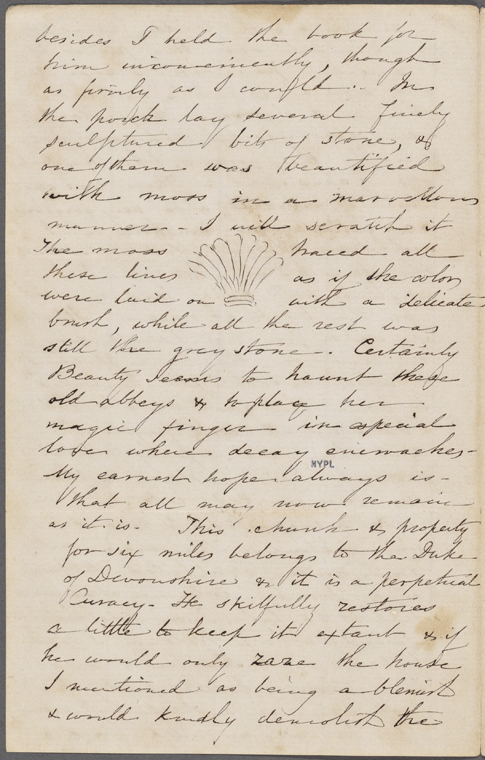 besides I held the book for
him inconveniently, though
as firmly as I could. In
the porch lay several finely
sculptured bits of stone, &
one of them was beautified
with moss in a marvellous
manner - I will scratch it
The moss traced all
these lines as if the color
were laid on with a delicate
brush, while all the rest was
still the grey stone. Certainly
Beauty seems to haunt these
old abbeys & to place her
magic finger in especial
love where decay encroaches -
My earnest hope always is -
that all may now remain
as it is. This church & property
for six miles belongs to the Duke
of Devonshire & it is a perpetual
Curacy - He skilfully restores
a little to keep it extant & if
he would only raze the house
I mentioned as being a blemish
& would kindly demolish the
NYPL